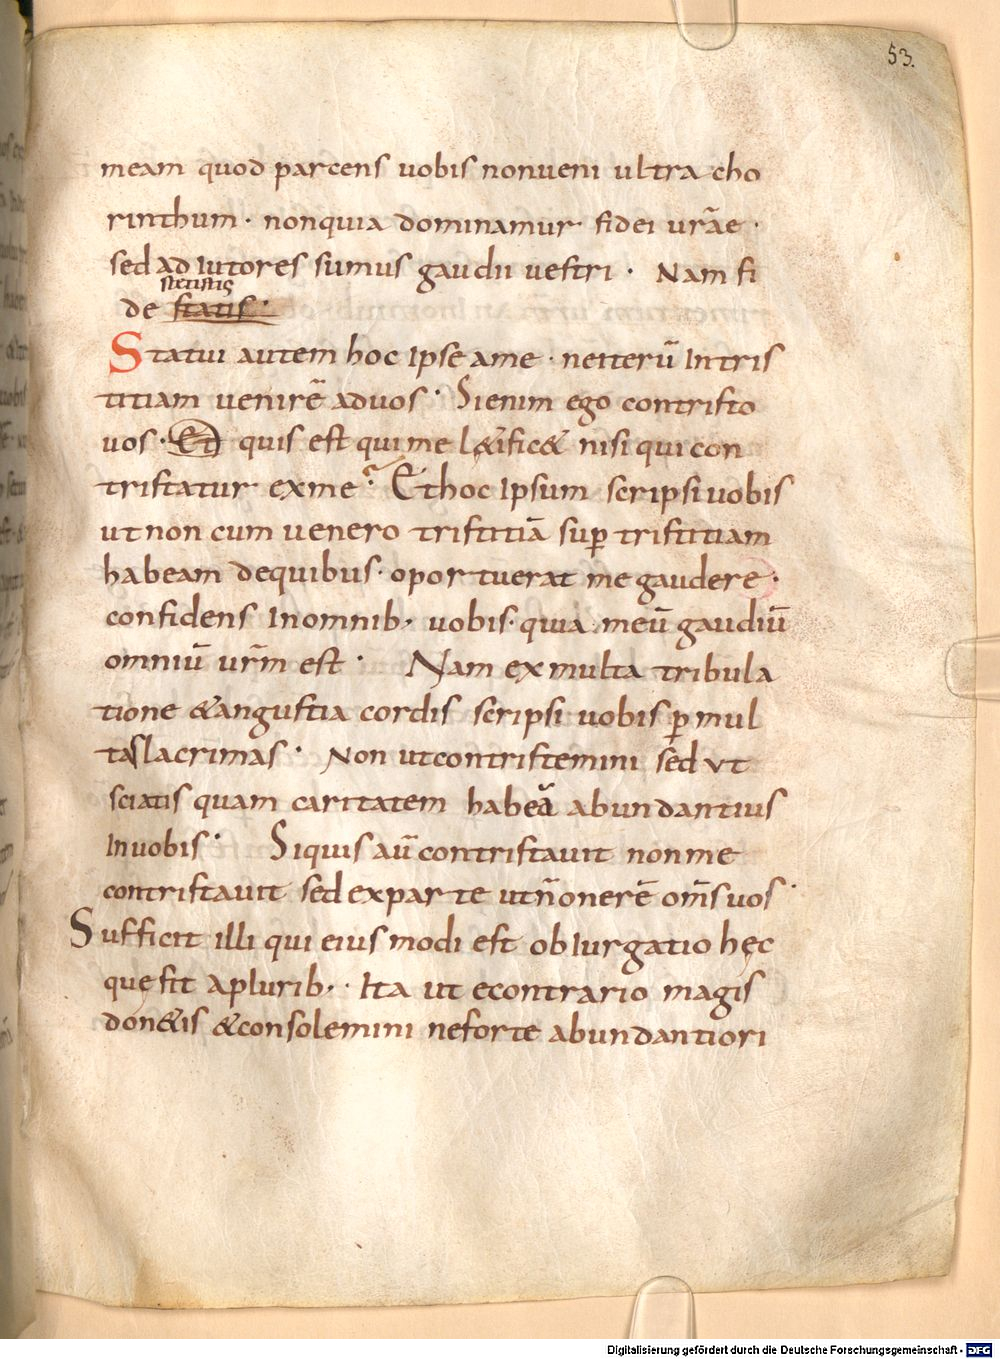 53.
meam quod parcens uobis nonueni ultra cho
rinthum · nonquia dominamur fidei urāe ·
sed ad Iutores sumus gaudii uestri · Nam fi
stetistis
de statis ·
Statui autem hoc Ipse ame · neiterū Intris
titiam uenirē aduos · Sienim ego contristo
uos · Et quis est qui me l&ific& nisi qui con
tristatur exme · Et hoc Ipsum scripsi uobis
ut non cum uenero tristitiā sup̱ tristitiam
habeam dequibus · oportuerat me gaudere ·
confidens Inomnib, uobis · quia meū gaudiū
omniū urm̄ est · Nam ex multa tribula
tione &angustia cordis scripsi uobis p̱ mul
tas lacrimas · Non utcontristemini sed ut
sciatis quam caritatem habeā abundantius
Inuobis · Siquis aū contristauit nonme
contristauit sed exparte utn̄onerē om̄s uos ·
Sufficit illi qui eius modi est obIurgatio hęc
quę fit aplurib, · Ita ut econtrario magis
don&is &consolemini neforte abundantiori
Digitalisierung gefördert durch die Deutsche Forschungsgemeinschaft - DFG